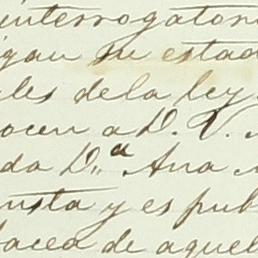 interrogatori
igan su estad
les de la ley
ocen a D. V.
da D.ª Ana
usta y es pub
bacea de aquel